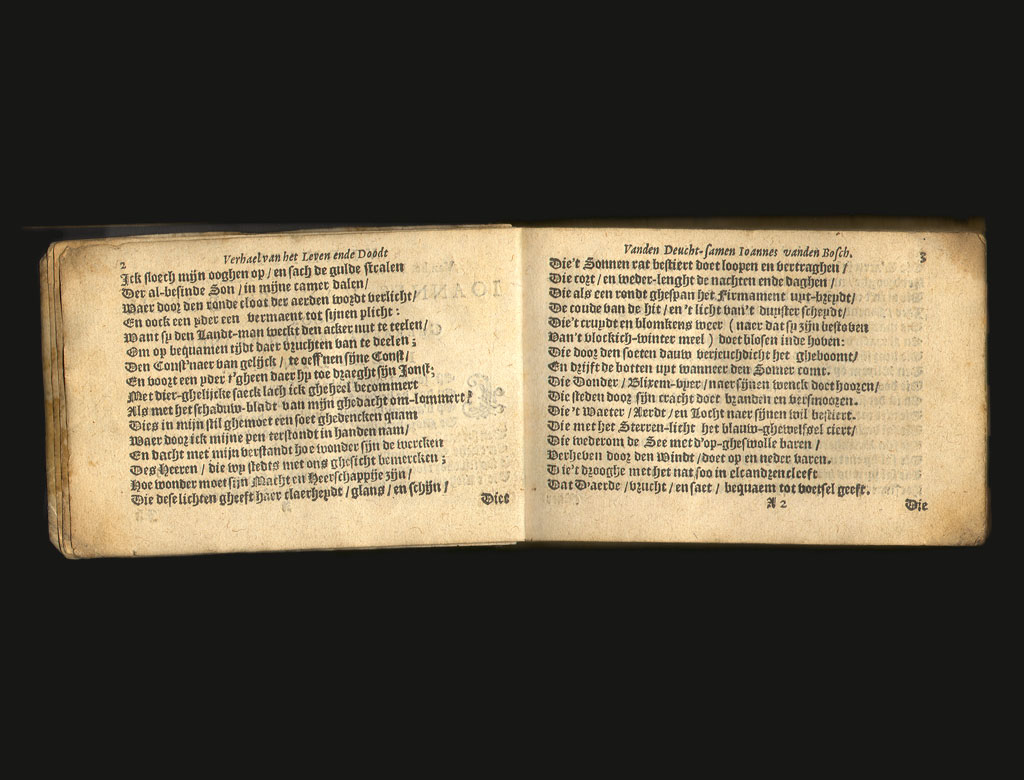 2
Verhael van het Leven ende Doodt
Ick sloech mijn ooghen op / en sach de gulde stralen
Der al-besinde Son / in mijne camer dalen /
Waer door den ronde cloot der aerden wordt verlicht /
En oock een yder een vermaent tot sijnen plicht :
Want sy den Landt-man weckt den acker nut te teelen /
Om op bequamen tijdt daer vruchten van te deelen ;
Den Const'naer van gelijck / te oeff'nen sijne Const /
En voort een yder t'gheen daer hy toe draeght sijn Jonst ;
Met dier-ghelijcke saeck lach ick gheheel becommert
Als met het schaduw-bladt van mijn ghedacht om-lommert :
Dies in mijn stil ghemoet een soet ghedencken quam
Waer door ick mijne pen terstondt in handen nam /
En dacht met mijn verstandt hoe wonder sijn de wercken
Des Heeren / die wy stedts met ons ghesicht bemercken ;
Hoe wonder moet sijn Macht en Heerschappije zijn /
Die dese lichten gheeft haer claerheydt / glans / en schijn /
Diet
Vanden Deucht-samen Ioannes vanden Bosch.
3
Die't Sonnen rat bestiert doet loopen en vertraghen /
Die cort / en weder-lenght de nachten ende daghen /
Die als een rondt ghespan het Firmament uyt-breydt /
De coude van de hit / en't licht van't duyster scheydt /
Die't cruydt en blomkens weer ( naer dat sy zijn bestoven
Van't vlockich-winter meel ) doet blosen inde hoven :
Die door den soeten dauw verjeuchdicht het gheboomt /
En drijft de botten uyt wanneer den Somer comt.
Die Donder / Blixem-vyer / naer sijnen wenck doet hooren /
Die steden door sijn cracht doet branden en versmooren.
Die 't Waeter / Aerdt / en Locht naer sijnen wil bestiert.
Die met het Sterren-licht het blauw-ghewelfsel ciert /
Die wederom de See met d'op-gheswolle baren /
Verheven door den Windt / doet op en neder varen.
Die't drooghe met het nat soo in elcandren cleeft
Dat D'aerde / vrucht / en saet / bequaem tot voetsel geeft.
A 2
Die